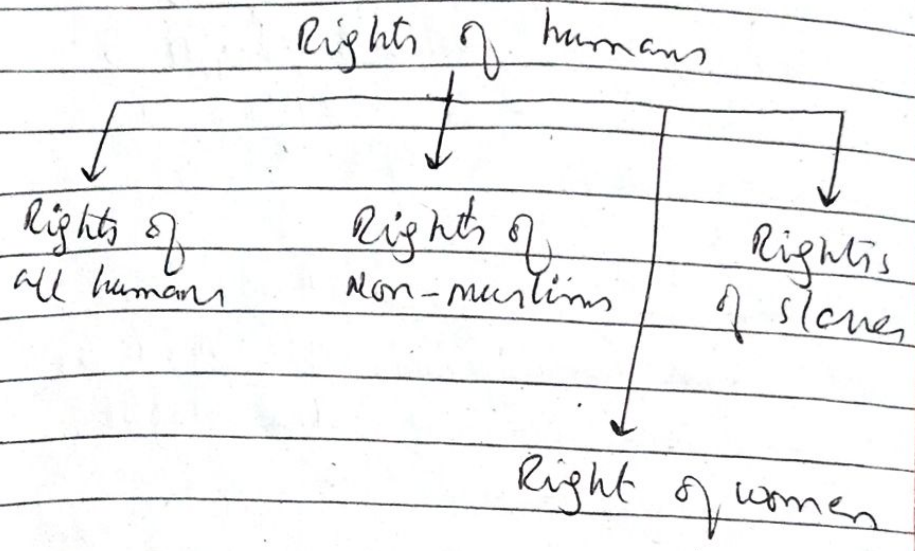 Rights of humans
Rights of
all humans
Rights of
Non-muslims
Rights
of slaves
Right of women